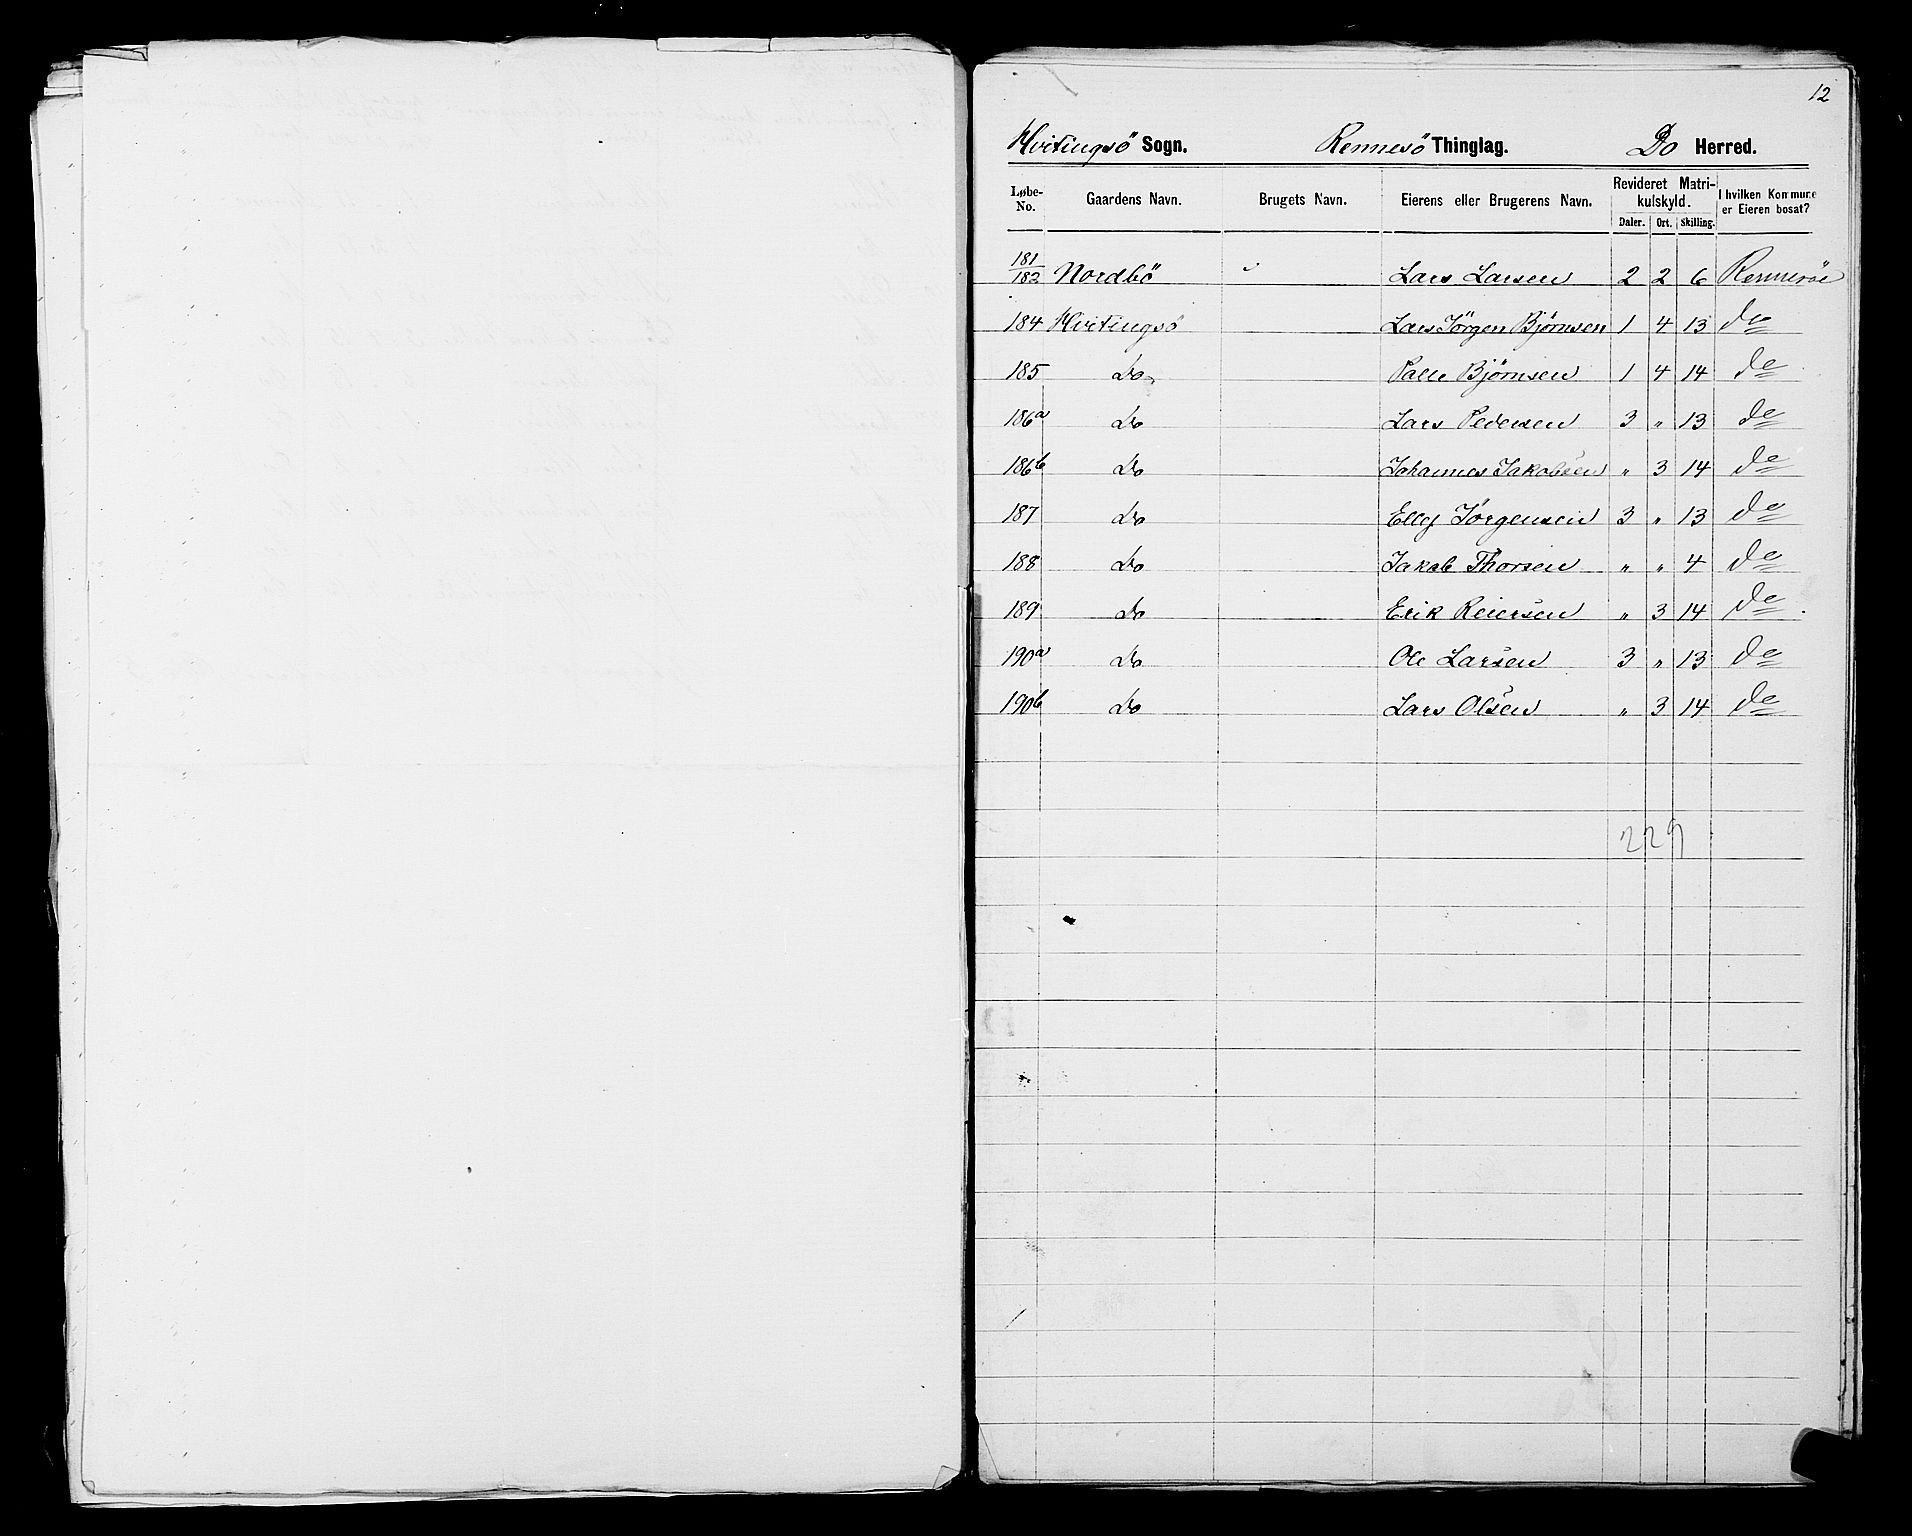 12
Hvitingsö Sogn. Rennesö Thinglag. Do Herred.
Løbe-No. Gaardens Navn. Brugets Navn. Eierens eller Brugerens Navn. Revideret Matrikulskyld. Daler. Ort. Skilling. I hvilken Kommune er Eieren bosat?
181/182 Nordbö Lars Larsen 2 2 6 Rennesöe
184 Hvitingsö Lars Jörgen Björnsen 1 4 13 do
185 Do Palle Björnsen 1 4 14 do
186a Do Lars Pedersen 3 " 13 do
186b Do Johannes Jakobsen " 3 14 do
187 Do Ellef Jörgensen 3 " 13 do
188 Do Jakob Thorsen " " 4 do
189 Do Erik Reiersen " 3 14 do
190a Do Ole Larsen 3 " 13 do
190b Do Lars Olsen " 3 14 do
229